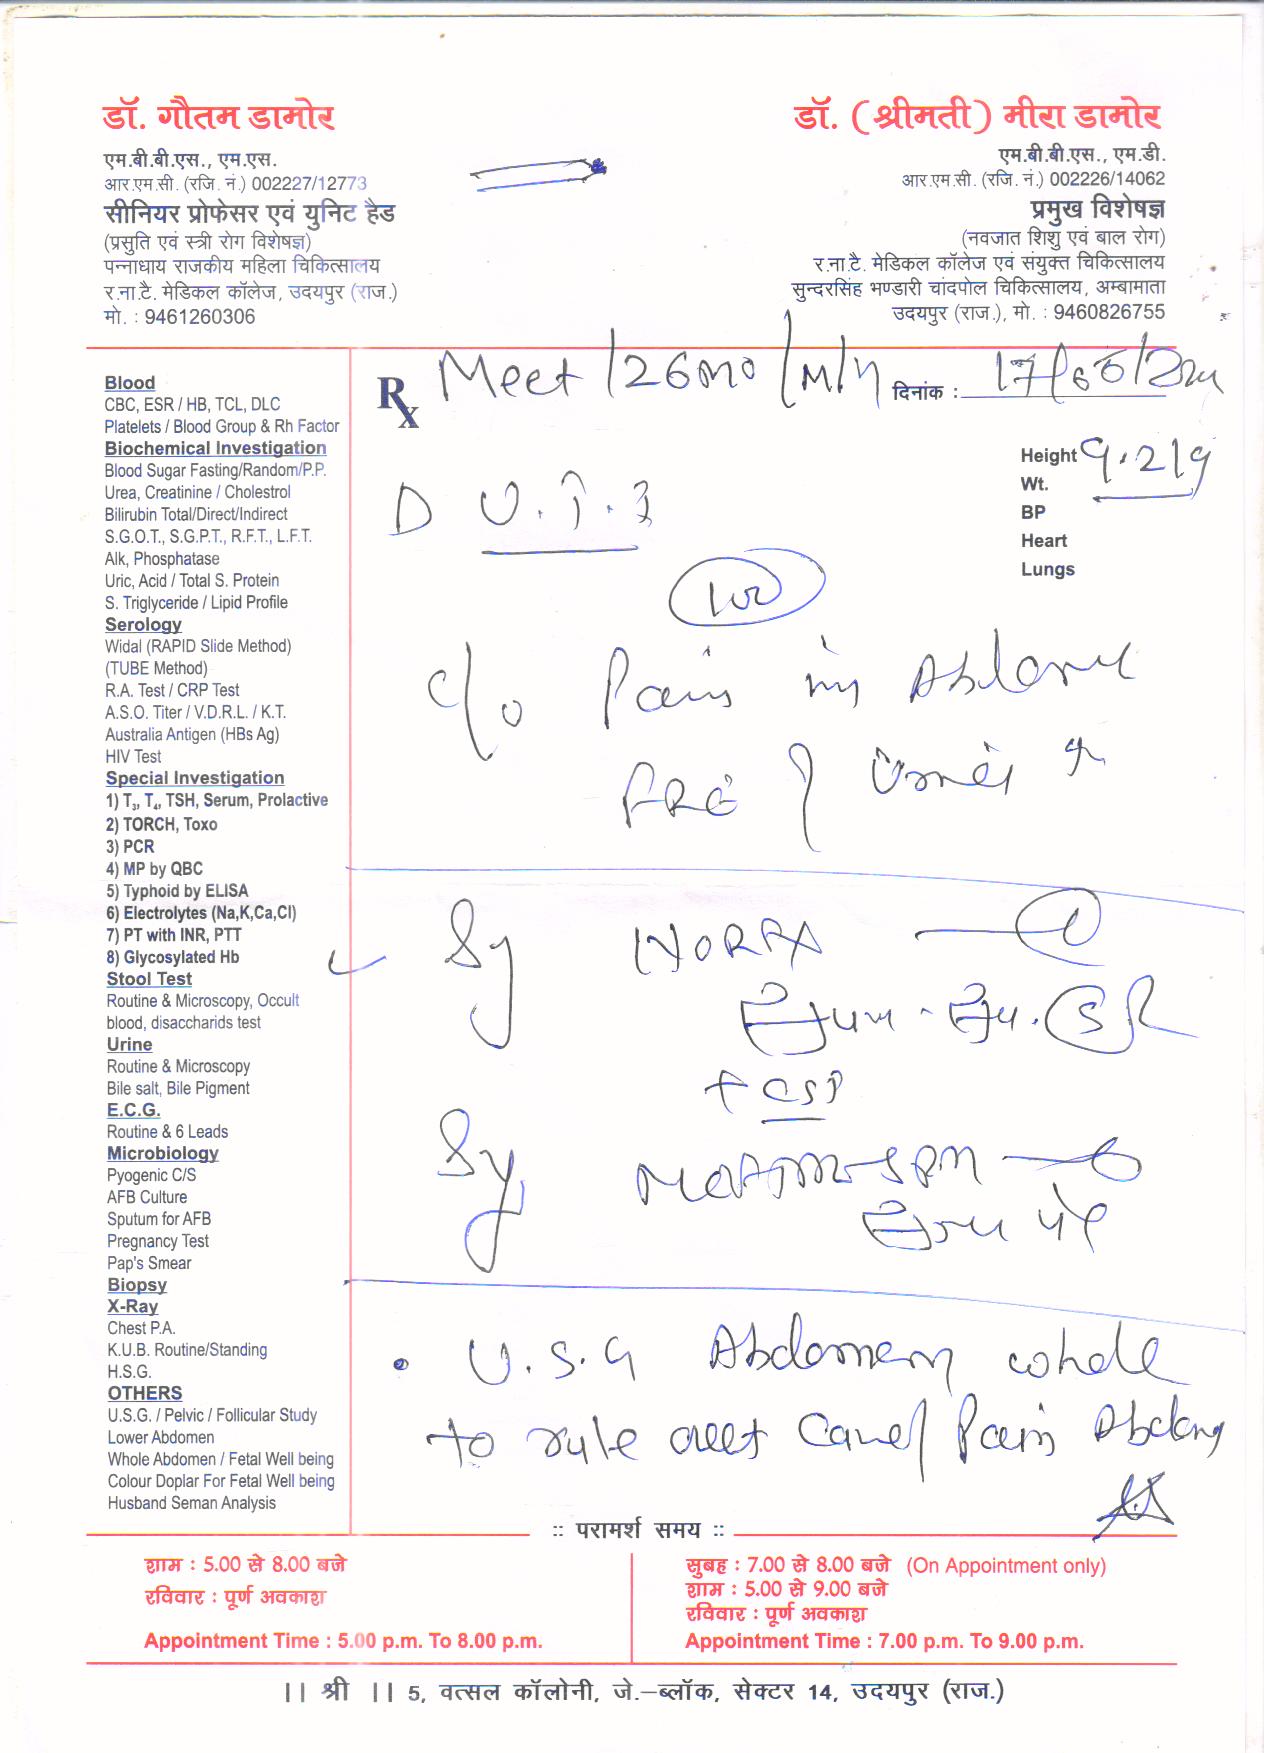 डॉ. गौतम डामोर
एम.बी.बी.एस., एम.एस.
आर.एम.सी. (रजि. नं.) 002227/12773
सीनियर प्रोफेसर एवं युनिट हैड
(प्रसुति एवं स्त्री रोग विशेषज्ञ)
पन्नाधाय राजकीय महिला चिकित्सालय
र.ना.टै. मेडिकल कॉलेज, उदयपुर (राज.)
मो. : 9461260306
डॉ. (श्रीमती) मीरा डामोर
एम.बी.बी.एस., एम.डी.
आर.एम.सी. (रजि. नं.) 002226/14062
प्रमुख विशेषज्ञ
(नवजात शिशु एवं बाल रोग)
र.ना.टै. मेडिकल कॉलेज एवं संयुक्त चिकित्सालय
सुन्दरसिंह भण्डारी चांदपोल चिकित्सालय, अम्बामाता
उदयपुर (राज.), मो. : 9460826755
Blood
CBC, ESR / HB, TCL, DLC
Platelets / Blood Group & Rh Factor
Biochemical Investigation
Blood Sugar Fasting/Random/P.P.
Urea, Creatinine / Cholestrol
Bilirubin Total/Direct/Indirect
S.G.O.T., S.G.P.T., R.F.T., L.F.T.
Alk, Phosphatase
Uric, Acid / Total S. Protein
S. Triglyceride / Lipid Profile
Serology
Widal (RAPID Slide Method)
(TUBE Method)
R.A. Test / CRP Test
A.S.O. Titer / V.D.R.L. / K.T.
Australia Antigen (HBs Ag)
HIV Test
Special Investigation
1) T3, T4, TSH, Serum, Prolactive
2) TORCH, Toxo
3) PCR
4) MP by QBC
5) Typhoid by ELISA
6) Electrolytes (Na,K,Ca,Cl)
7) PT with INR, PTT
8) Glycosylated Hb
Stool Test
Routine & Microscopy, Occult
blood, disaccharids test
Urine
Routine & Microscopy
Bile salt, Bile Pigment
E.C.G.
Routine & 6 Leads
Microbiology
Pyogenic C/S
AFB Culture
Sputum for AFB
Pregnancy Test
Pap's Smear
Biopsy
X-Ray
Chest P.A.
K.U.B. Routine/Standing
H.S.G.
OTHERS
U.S.G. / Pelvic / Follicular Study
Lower Abdomen
Whole Abdomen / Fetal Well being
Colour Doplar For Fetal Well being
Husband Seman Analysis
Rx Meet /26mo /M/ दिनांक : 17/
Height
Wt.
BP
Heart
Lungs
D
c/o Pain in
Sy
Sy
U.S.G Abdomen whole
to rule Pain
:: परामर्श समय ::
शाम : 5.00 से 8.00 बजे
रविवार : पूर्ण अवकाश
Appointment Time : 5.00 p.m. To 8.00 p.m.
सुबह : 7.00 से 8.00 बजे (On Appointment only)
शाम : 5.00 से 9.00 बजे
रविवार : पूर्ण अवकाश
Appointment Time : 7.00 p.m. To 9.00 p.m.
|| श्री || 5, वत्सल कॉलोनी, जे.-ब्लॉक, सेक्टर 14, उदयपुर (राज.)